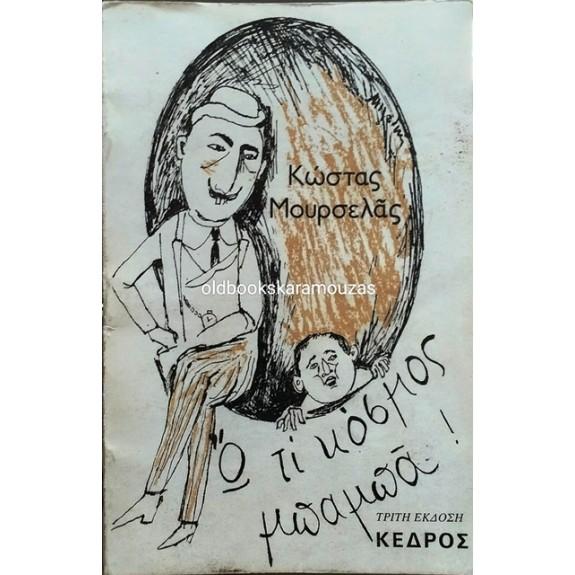 Κώστας
Μουρσελᾶς
oldbookskaramouzas
Ὦ τί κόσμος
μπαμπᾶ!
ΤΡΙΤΗ ΕΚΔΟΣΗ
ΚΕΔΡΟΣ